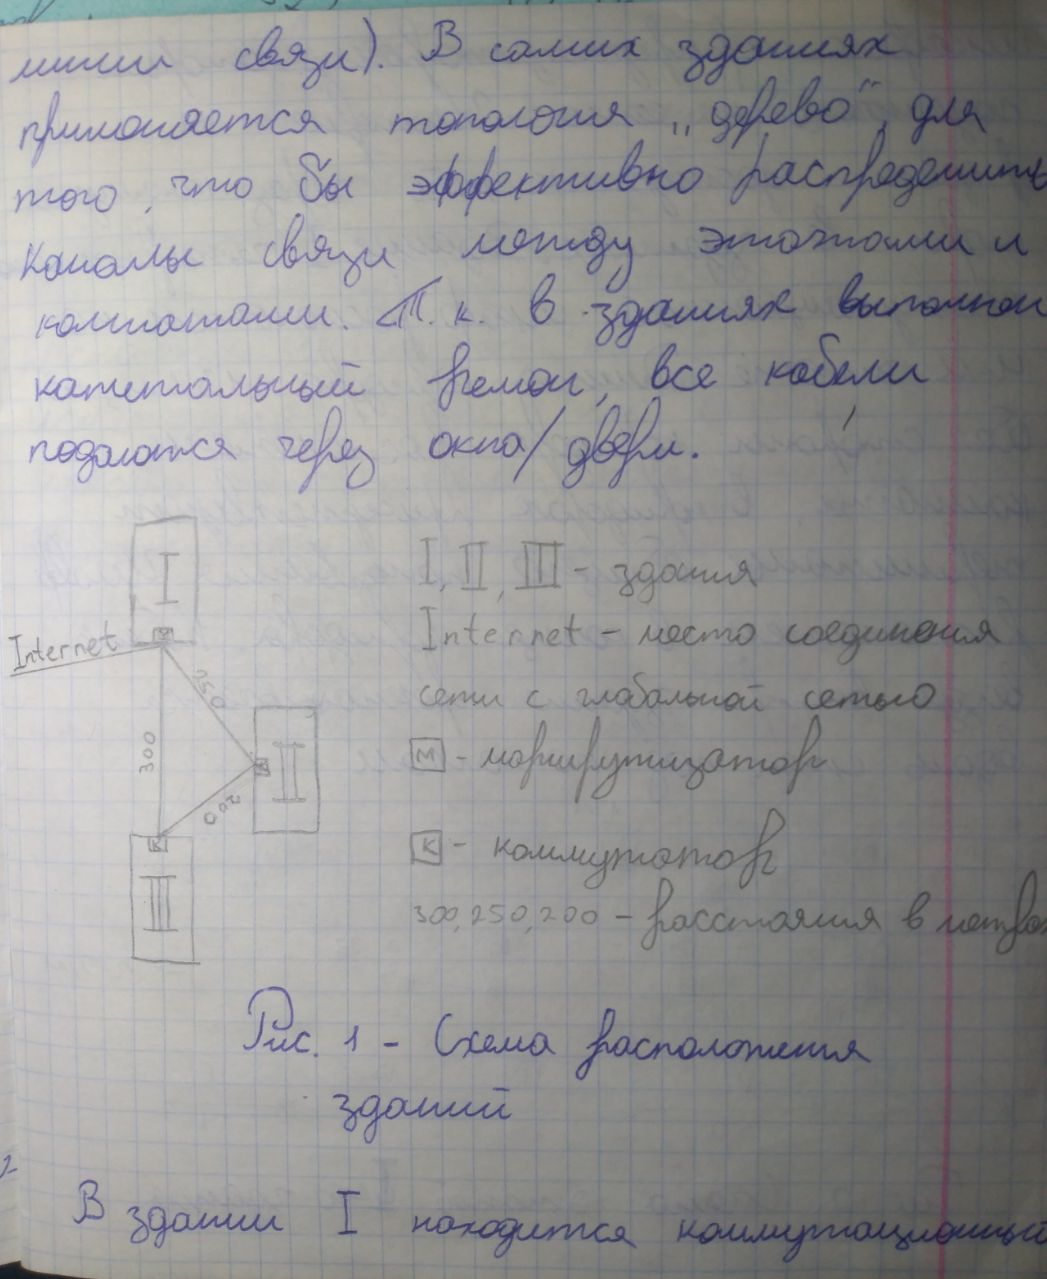 линии связи). В самих зданиях
применяется топология „дерево", для
того, что бы эффективно распределить
каналы связи между этажами и
комнатами. Т.к. в зданиях выполнен
капитальный ремон, все кабели
подаются через окна/двери.
I
I, II, III - здания
Internet
Internet - место соединения
сети с глобальной сетью
250
300
II
М - маршрутизатор
200
К
К - коммутатор
III
300, 250, 200 - расстояния в метрах
Рис. 1 - Схема расположения
зданий
В здании I находится коммутационный